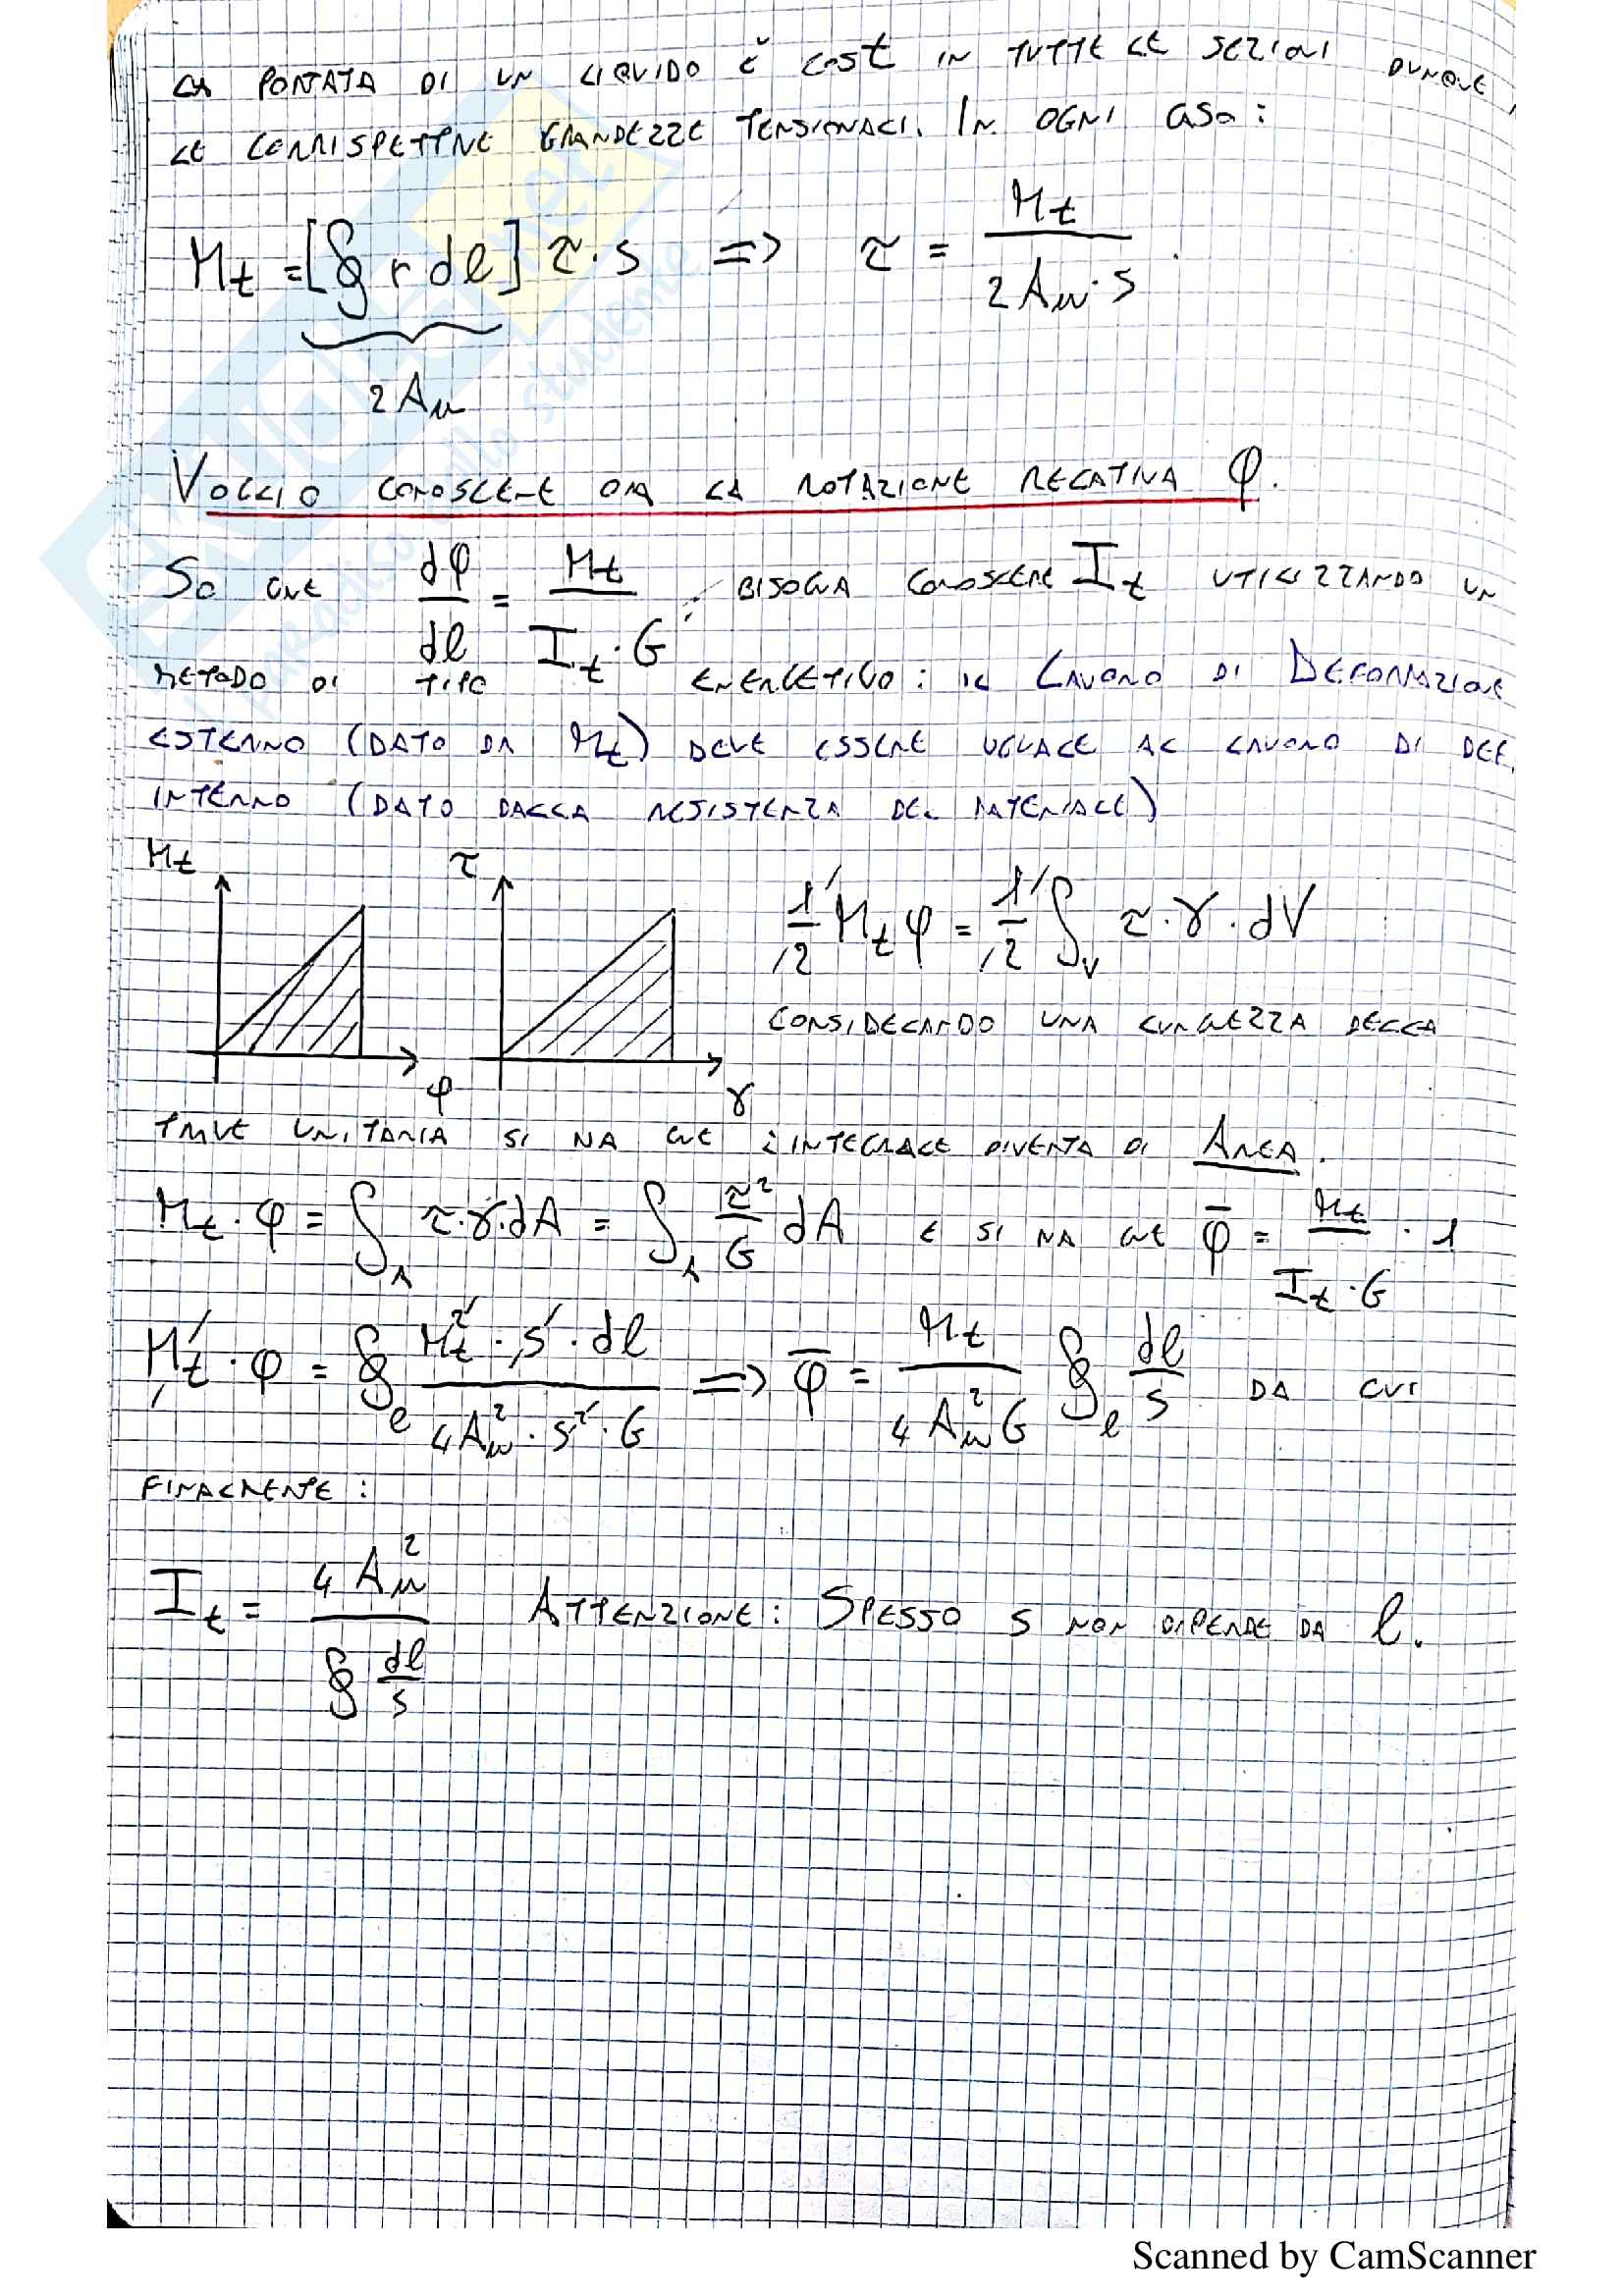 LA PORTATA DI UN LIQUIDO È cost IN TUTTE LE SEZIONI DUNQUE,
LE CORRISPETTIVE GRANDEZZE TENSIONALI. IN OGNI CASO:
Mt = [∮ r dl] τ·s => τ = Mt / (2Aₘ·s)
2Aₘ
VOGLIO CONOSCERE ORA LA ROTAZIONE RELATIVA φ.
SO CHE dφ/dl = Mt / (It·G), BISOGNA CONOSCERE It UTILIZZANDO UN
METODO DI TIPO ENERGETICO: IL LAVORO DI DEFORMAZIONE
ESTERNO (DATO DA Mt) DEVE ESSERE UGUALE AL LAVORO DI DEF.
INTERNO (DATO DALLA RESISTENZA DEL MATERIALE)
Mt τ
1/2 Mt φ = 1/2 ∫v τ·γ·dV
CONSIDERANDO UNA LUNGHEZZA DELLA
φ γ
TRAVE UNITARIA SI HA CHE L'INTEGRALE DIVENTA DI AREA.
Mt·φ = ∫A τ·γ·dA = ∫A τ²/G dA E SI HA CHE φ̄ = Mt / (It·G) · 1
Mt·φ = ∮l (Mt²·s·dl) / (4Aₘ²·s²·G) => φ̄ = Mt / (4Aₘ²G) ∮l dl/s DA CUI
FINALMENTE:
It = 4Aₘ² / ∮ dl/s ATTENZIONE: SPESSO s NON DIPENDE DA l.
Scanned by CamScanner